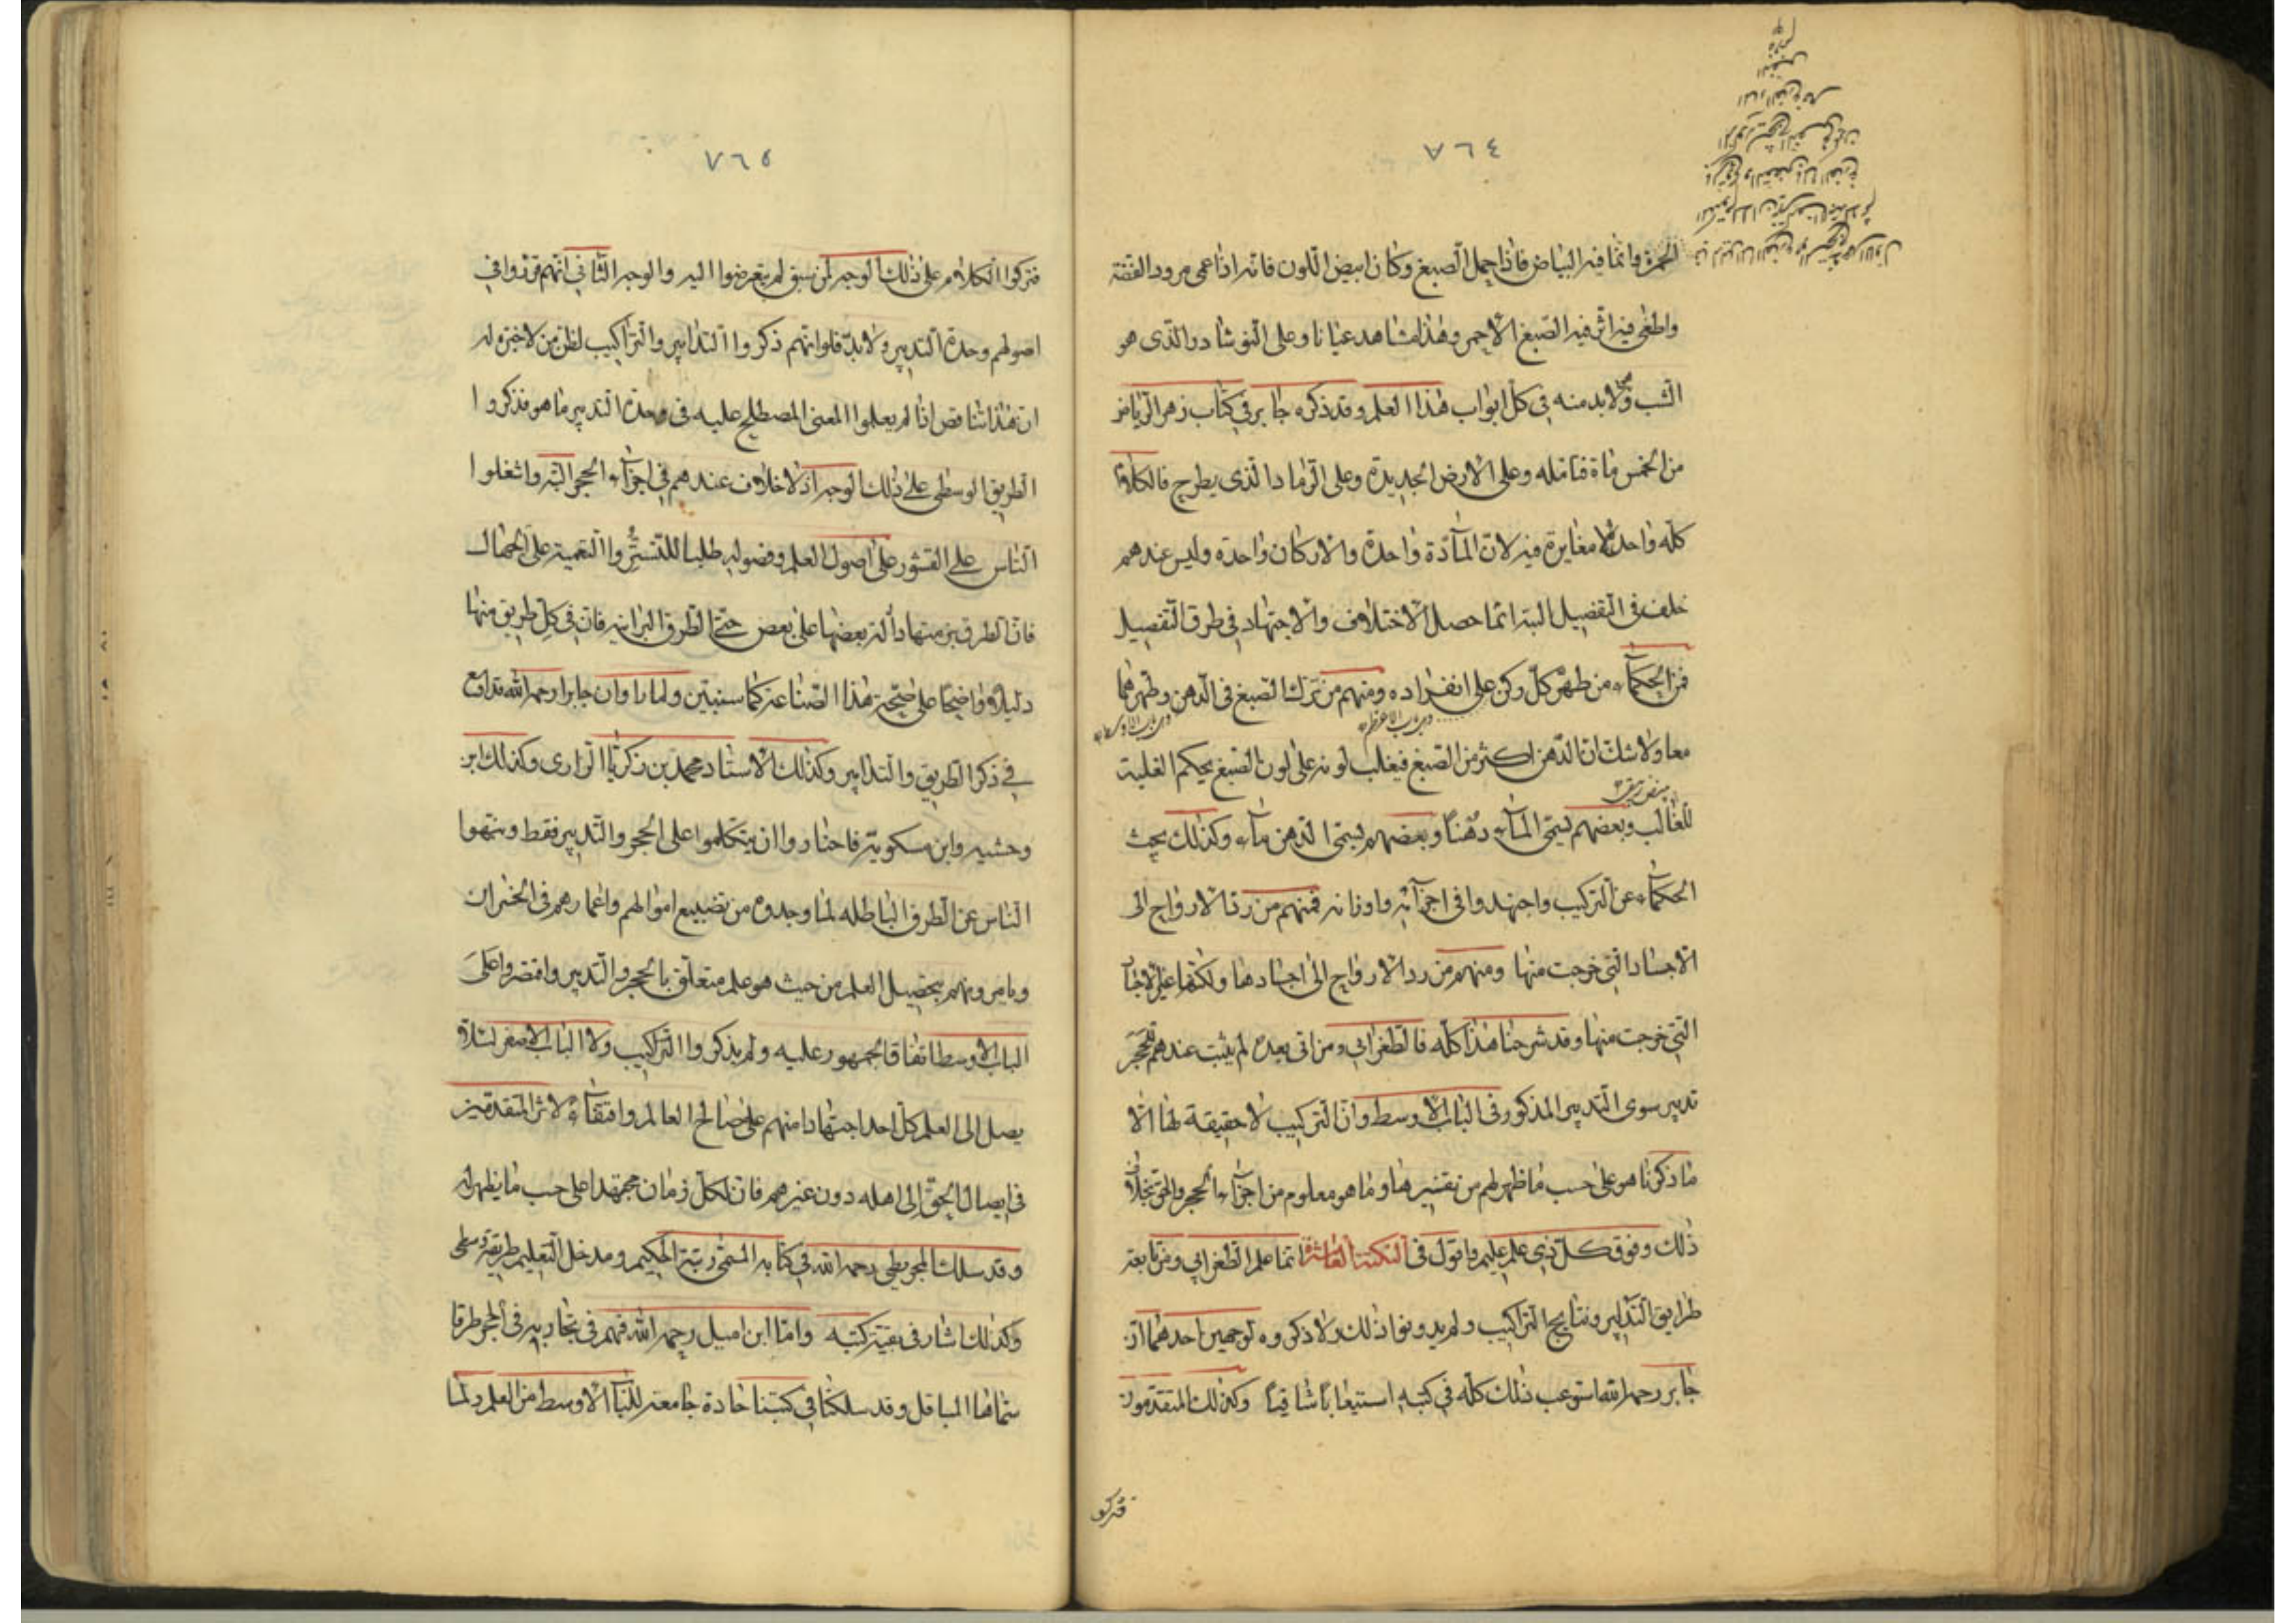 ٧٦٤
الحمرة وانما فيه البياض فاذا حمل الصبغ وكان ابيض اللون فانه اذا حمى مرود الفضة
واطفى فيه اثر فيه الصبغ الاحمر وهذا مشاهد عيانا وعلى النوشادر الذى هو
الشب ولا بد منه فى كل ابواب هذا العلم وقد ذكره جابر فى كتاب زهر الرياض
من الخمس ماة فتامله وعلى الارض الجديدة وعلى الرماد الذى يطرح فالكلام
كله واحد لا مغايرة فيه لان المآدة واحدة والاركان واحدة وليس عندهم
خلف فى التفصيل البتة انما حصل الاختلاف والاجتهاد فى طرق التفصيل
فمن الحكمآء من طهر كل ركن على انفراده ومنهم من ترك الصبغ فى الدهن وطهرهما
معا ولا شك ان الدهن اكثر من الصبغ فيغلب لونه على لون الصبغ بحكم الغلبة
للغالب وبعضهم يسمى المآء دهنا وبعضهم يسمى الدهن مآء وكذلك بحث
الحكمآء عن التركيب واجتهدوا فى اجزآئه واوزانه فمنهم من رد الارواح الى
الاجساد التى خرجت منها ومنهم من رد الارواح الى اجسادها ولكنها غير الاجساد
التى خرجت منها وقد شرحنا هذا كله فالطغرائى ومن اتى بعده لم يثبت عندهم للحجر
تدبير سوى التدبير المذكور فى الباب الاوسط وان التركيب لا حقيقة لها الا
ما ذكرنا هو على حسب ما ظهر لهم من تفسيرها وما هو معلوم من اجزآء الحجر والحق بخلاف
ذلك وفوق كل ذى علم عليم واقول فى النكتة العاشرة انما علم الطغرائى ومن تابعه
طرايق التدابير ونتايج التراكيب ولم يدونوا ذلك ولا ذكروه لوجهين احدهما ان
جابر رحمه الله استوعب ذلك كله فى كتبه استيعابا شافيا وكذلك المتقدمون
فتركو
٧٦٥
فتركوا الكلام على ذلك الوجه لمن سبق لم يتعرضوا اليه والوجه الثانى انهم قرروا فى
اصولهم وحدة التدبير ولا بد فلو انهم ذكروا التدابير والتراكيب لظن من لا خبرة له
ان هذا تناقض اذا لم يعلموا المعنى المصطلح عليه فى وحدة التدبير ما هو فذكروا
الطريق الوسطى على ذلك الوجه اذ لا خلاف عندهم فى اجزآء الحجر البتة واشغلوا
الناس على القشور على اصول العلم وفصوله طلبا للتستر والتعمية على الجهال
فان الطرق برمتها دالة بعضها على بعض حتى الطرق البرانية فان فى كل طريق منها
دليلا واضحا على صحة هذا الصناعة كما سنبين ولما راوا ان جابرا رحمه الله قد اوسع
فى ذكر الطريق والتدابير وكذلك الاستاد محمد بن زكريا الرازى وكذلك ابن
وحشيه وابن مسكوية فاختاروا ان يتكلموا على الحجر والتدبير فقط وينهوا
الناس عن الطرق الباطله لما وجدوه من تضييع اموالهم واعمارهم فى الخسران
ويامرونهم بتحصيل العلم من حيث هو علم متعلق بالحجر والتدبير واقتصروا على
الباب الاوسط اتفاق الجمهور عليه ولم يذكروا التركيب ولا الباب الاصغر لئلا
يصل الى العلم كل احد اجتهادا منهم على صالح العالم واقتفآء لاثر المتقدمين
فى ايصال الحق الى اهله دون غيرهم فان لكل زمان مجتهدا على حسب ما يظهر له
وقد سلك المجريطى رحمه الله فى كتابه المسمى رتبة الحكيم ومدخل التعليم طريقة وسطى
وكذلك اشار فى بقية كتبه واما ابن اميل رحمه الله فهم فى تجاربه فى الحجر طرقا
سماها المباقل وقد سلكنا فى كتبنا جادة جامعة للباب الاوسط من العلم ولما